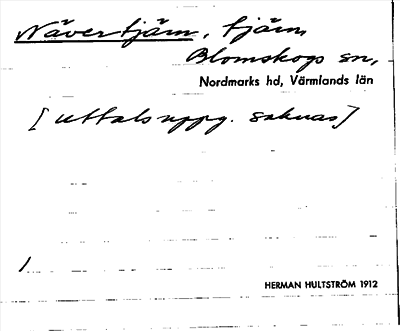 Nävertjärn, tjärn,
Blomskogs sn,
Nordmarks hd, Värmlands län
[uttalsuppg. saknas]
1
HERMAN HULTSTRÖM 1912